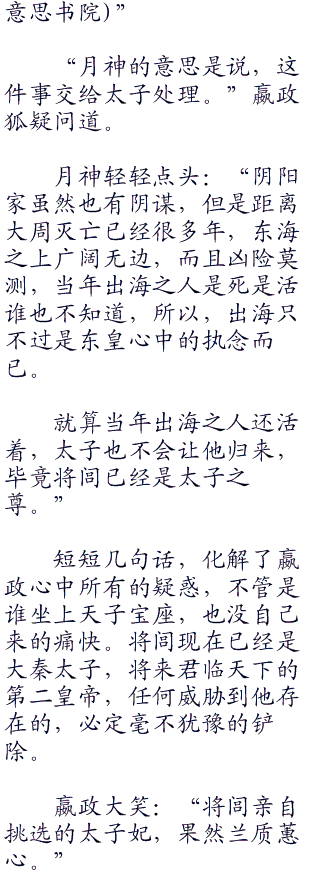 意思书院)”
“月神的意思是说，这
件事交给太子处理。”嬴政
狐疑问道。
月神轻轻点头：“阴阳
家虽然也有阴谋，但是距离
大周灭亡已经很多年，东海
之上广阔无边，而且凶险莫
测，当年出海之人是死是活
谁也不知道，所以，出海只
不过是东皇心中的执念而
已。
就算当年出海之人还活
着，太子也不会让他归来，
毕竟将闾已经是太子之
尊。”
短短几句话，化解了嬴
政心中所有的疑惑，不管是
谁坐上天子宝座，也没自己
来的痛快。将闾现在已经是
大秦太子，将来君临天下的
第二皇帝，任何威胁到他存
在的，必定毫不犹豫的铲
除。
嬴政大笑：“将闾亲自
挑选的太子妃，果然兰质蕙
心。”